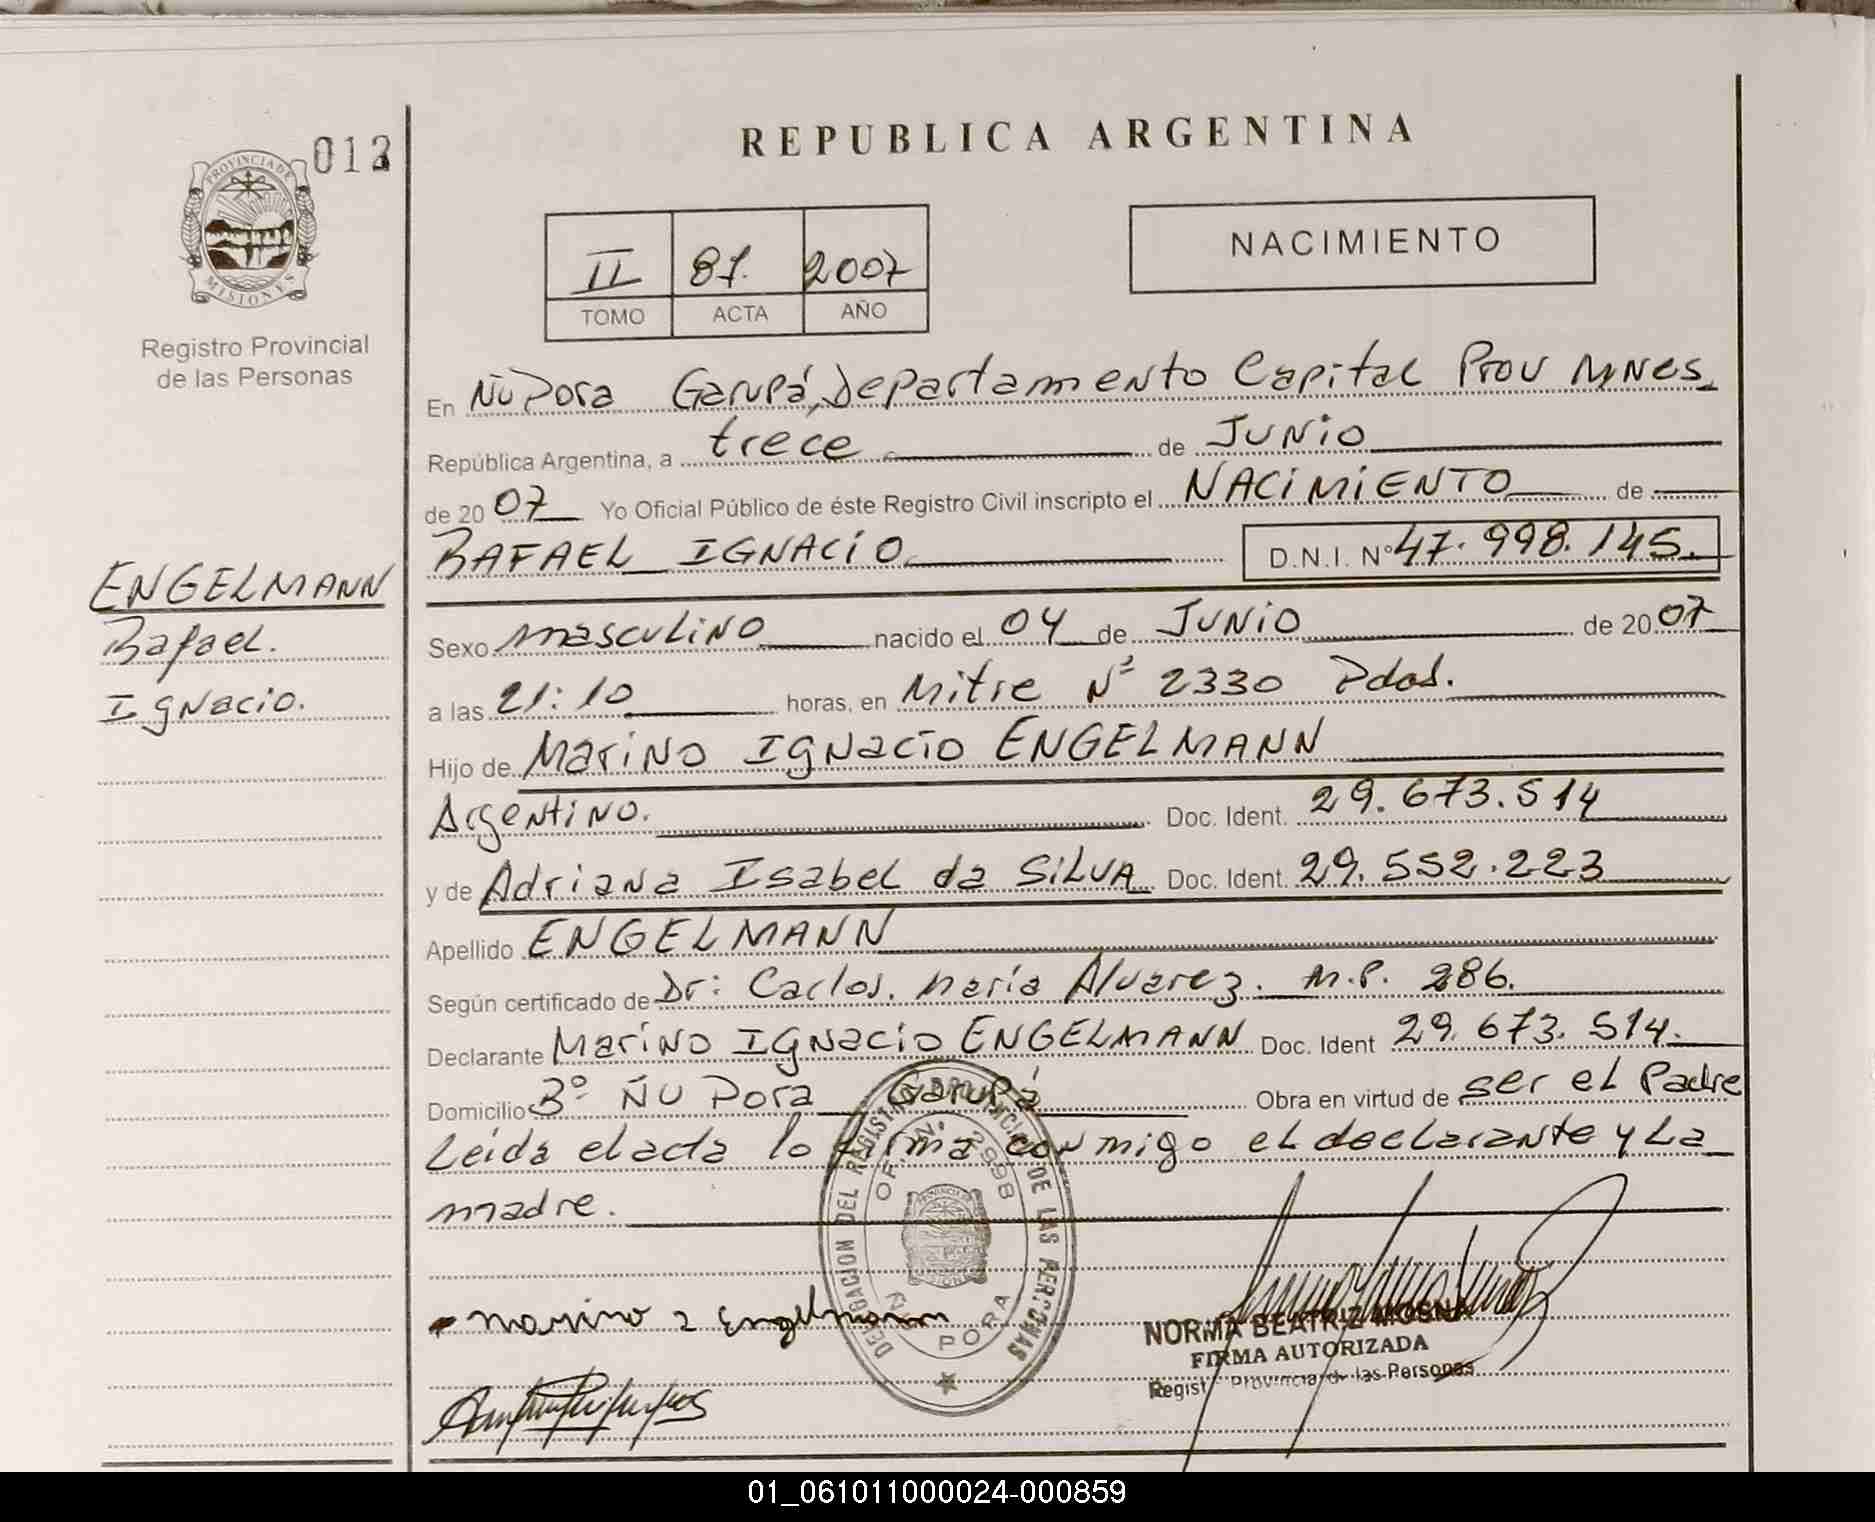 REPUBLICA ARGENTINA
PROVINCIA DE
MISIONES
Registro Provincial
de las Personas
II 87. 2007
TOMO ACTA AÑO
NACIMIENTO
En Ñu Pora Garupá, Departamento Capital Prov Mnes.
República Argentina, a trece de JUNiO
de 2007 Yo Oficial Público de éste Registro Civil inscripto el NACiMiENTO de
RAFAEL IGNACiO D.N.I. Nº 47.998.145.
ENGELMANN
Rafael.
Ignacio.
Sexo masculino nacido el 04 de JUNiO de 2007
a las 21:10 horas, en Mitre Nº 2330 Pdas.
Hijo de Marino Ignacio ENGELMANN
Argentino. Doc. Ident. 29.673.514
y de Adriana Isabel da SiLVA Doc. Ident. 29.552.223
Apellido ENGELMANN
Según certificado de Dr: Carlos. María Alvarez. M.P. 286.
Declarante Marino Ignacio ENGELMANN Doc. Ident 29.673.514.
Domicilio Bº ÑU Pora Garupá Obra en virtud de ser el Padre
Leida el acta lo firma conmigo el declarante y La
madre.
DELEGACION DEL REGISTRO PROVINCIAL DE LAS PERSONAS
OF. N. 2998
ÑU PORA
Marino I Engelmann
NORMA BEATRIZ MOSNA
FIRMA AUTORIZADA
Registro Provincial de las Personas
01_061011000024-000859